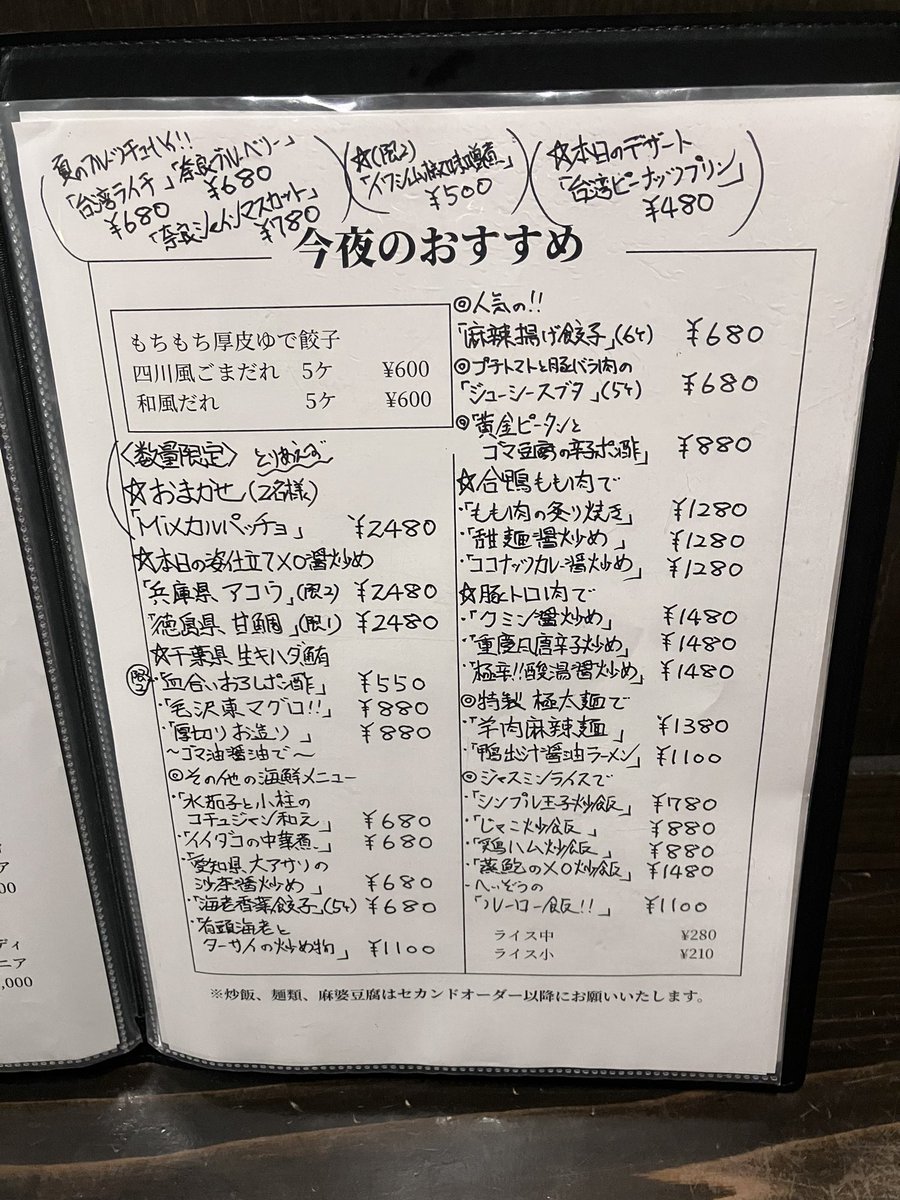 夏のフルーツチューハイ!!
「台湾ライチ」「奈良ブルーベリー」
¥680 ¥680
「奈良シャインマスカット」
¥780
☆(限2)
「イワシ山椒味噌煮」
¥500
☆本日のデザート
「台湾ピーナッツプリン」
¥480
今夜のおすすめ
もちもち厚皮ゆで餃子
四川風ごまだれ 5ケ ¥600
和風だれ 5ケ ¥600
〈数量限定〉 とりあえず
☆おまかせ(2名様)
「Mixカルパッチョ ¥2480
☆本日の姿仕立てXO醤炒め
「兵庫県、アコウ」(限2) ¥2480
「徳島県、甘鯛」(限1) ¥2480
☆千葉県 生キハダ鮪
限2
・「血合いおろしポン酢」 ¥550
・「毛沢東マグロ!!」 ¥880
・「厚切りお造り」 ¥880
〜ゴマ油醤油で〜
◎その他の海鮮メニュー
・「水茄子と小柱の
コチュジャン和え」 ¥680
・「イイダコの中華煮」 ¥680
・「愛知県、大アサリの
沙茶醤炒め」 ¥680
・「海老香菜餃子」(5ケ) ¥680
・「有頭海老と
ターサイの炒め物」 ¥1100
◎人気の!!
「麻辣揚げ餃子」(6ケ) ¥680
◎プチトマトと豚バラ肉の
「ジューシースブタ」(5ケ) ¥680
◎「黄金ピータンと
ゴマ豆腐の辛子ポン酢」 ¥880
☆合鴨もも肉で
・「もも肉の炙り焼き」 ¥1280
・「甜麺醤炒め」 ¥1280
・「ココナッツカレー醤炒め」 ¥1280
☆豚トロ肉で
・「クミン醤炒め」 ¥1480
・「重慶風唐辛子炒め」 ¥1480
・「極辛!!酸湯醤炒め」 ¥1480
◎特製 極太麺で
・「羊肉麻辣麺」 ¥1380
・「鴨出汁醤油ラーメン」 ¥1100
◎ジャスミンライスで
・「シンプル玉子炒飯」 ¥780
・「じゃこ炒飯」 ¥880
・「鶏ハム炒飯」 ¥880
・「蒸鮑のXO炒飯」 ¥1480
・へいぞうの
「ルーロー飯!!」 ¥1100
ライス中 ¥280
ライス小 ¥210
※炒飯、麺類、麻婆豆腐はセカンドオーダー以降にお願いいたします。
ディ
ニア
,000